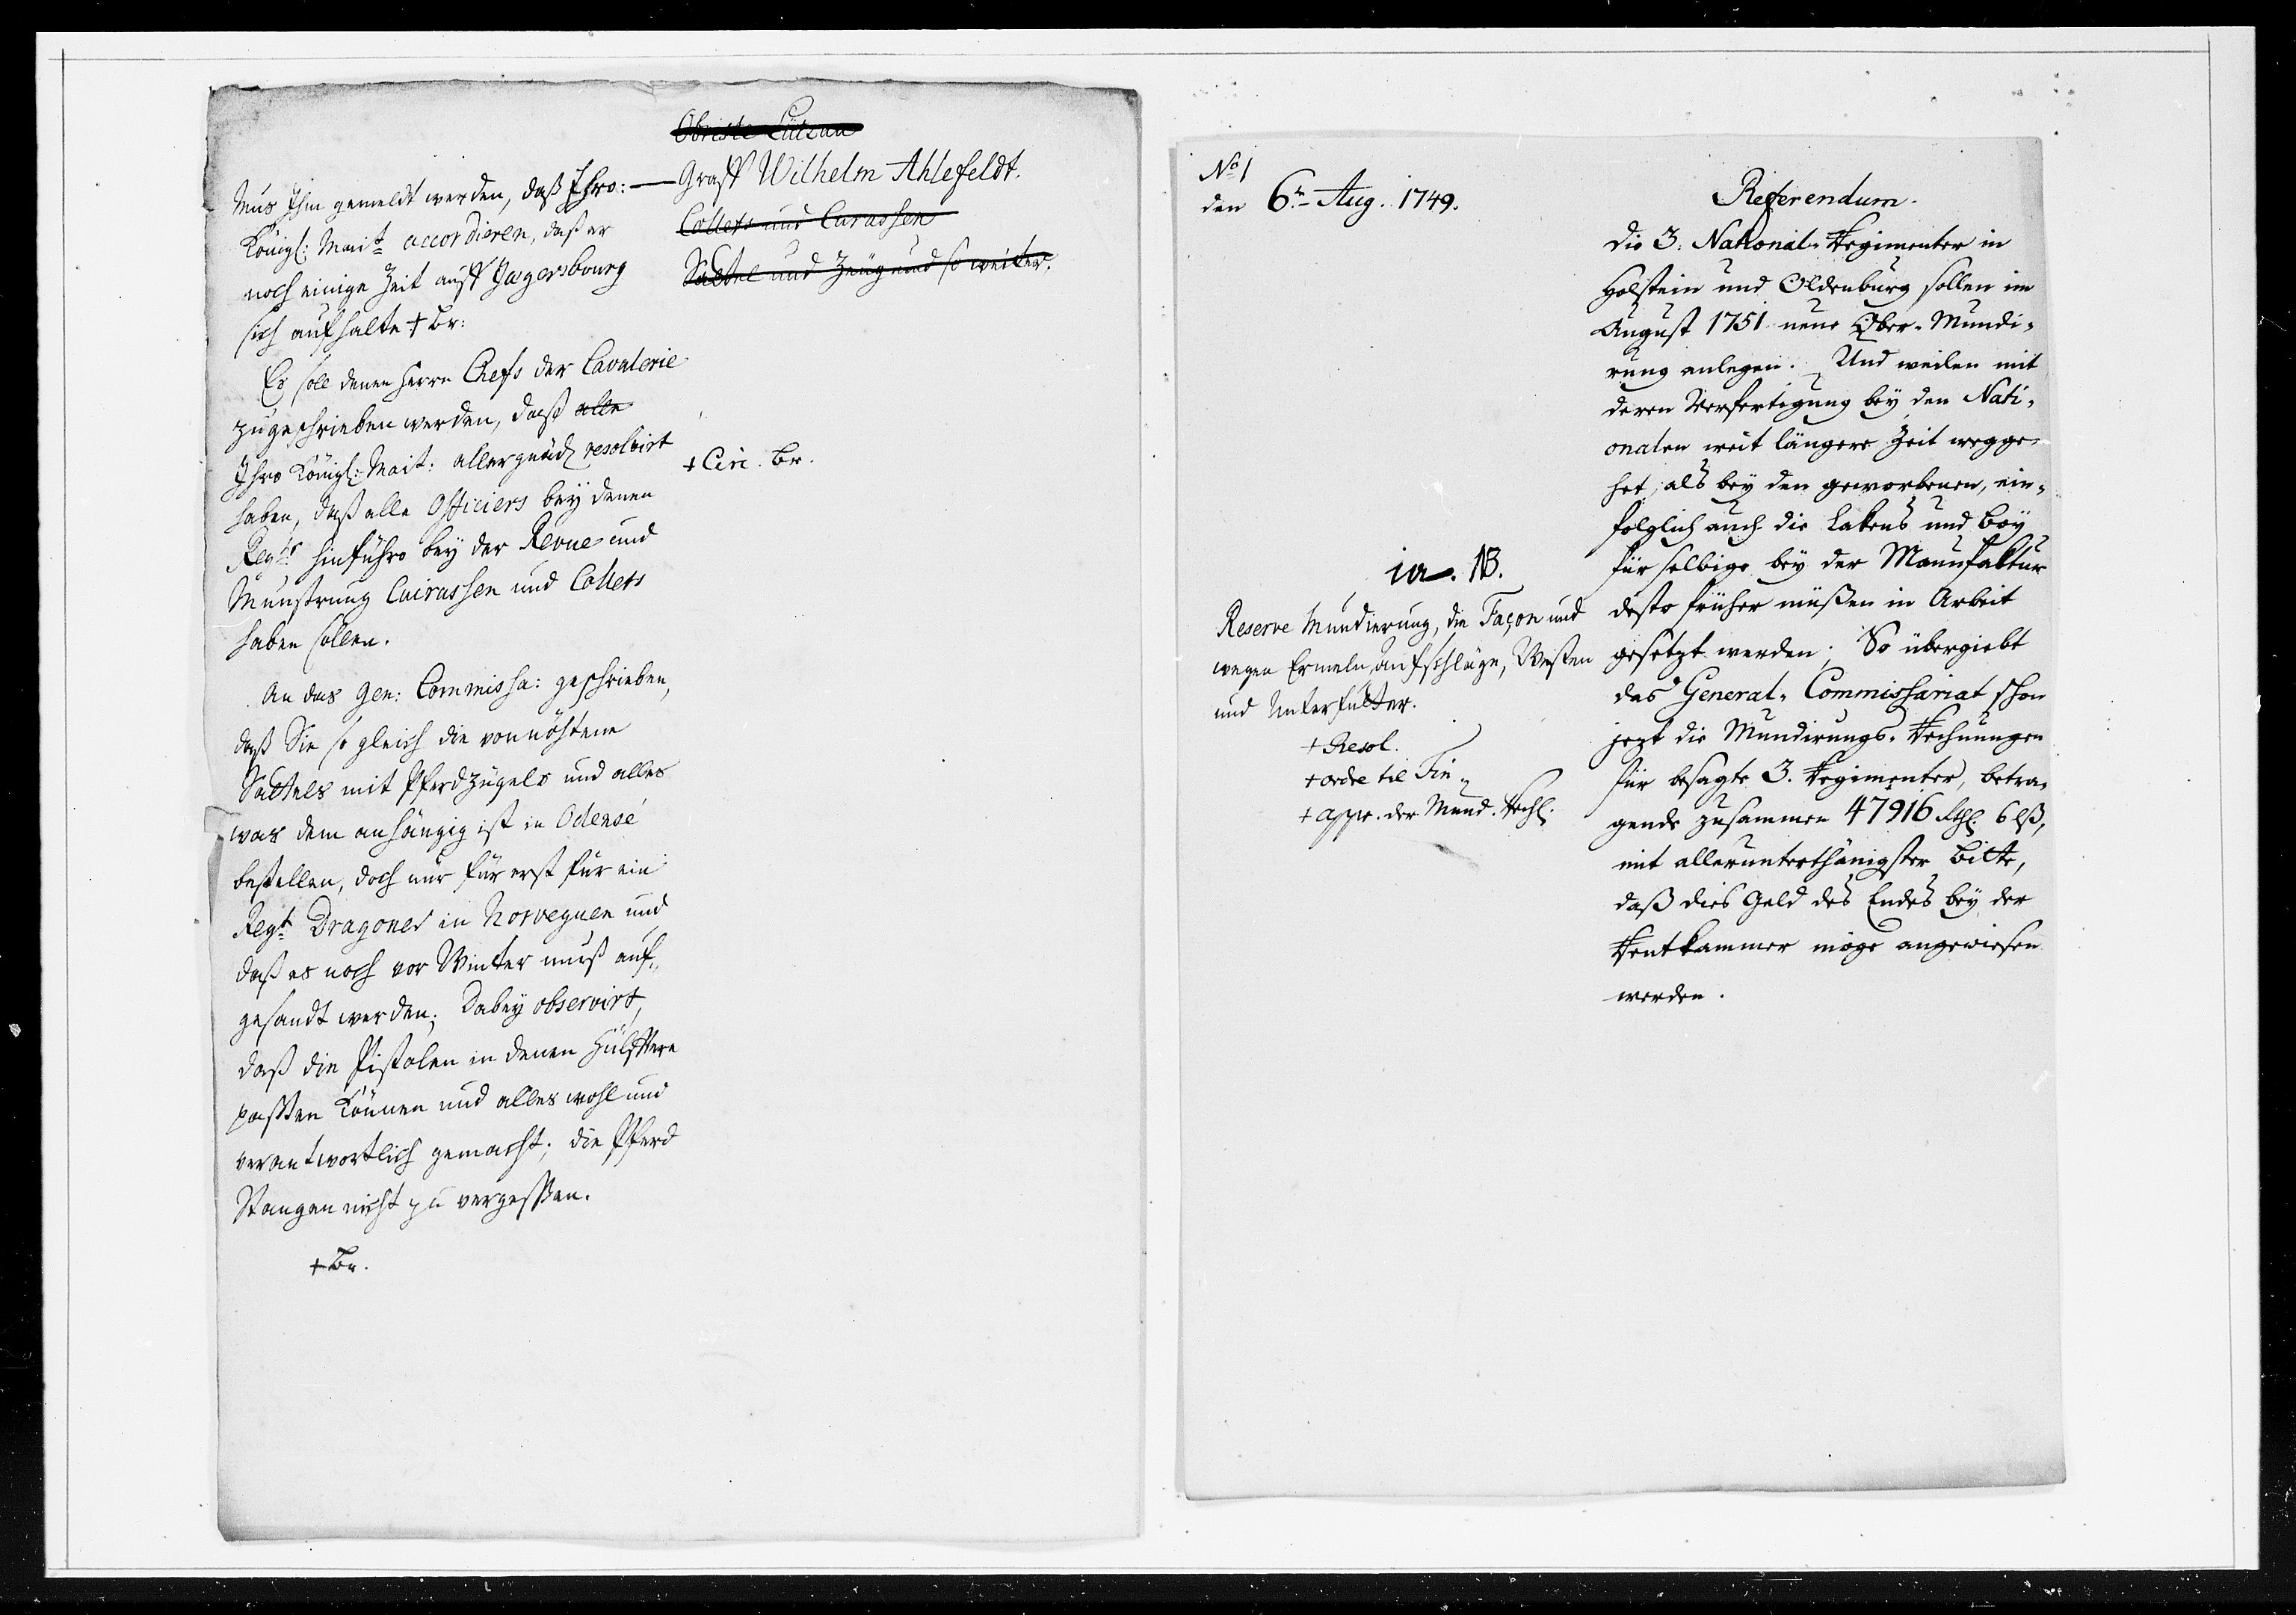 Obriste Lützau
Graff Wilhelm Ahlefeldt.
Collets und Curassen
Sättel und Zeüg und so weiter.
Mus Ihm gemeldt werden, daß Ihro: —
Königl: Mait accordieren, daß er
noch einige Zeit auff Jægersbourg
sich aufhalte + Br:
Es soll denen Herrn Chefs der Cavalerie
zugeschrieben werden, daß alle
Ihro Königl: Mait: allergnäd resolvirt
haben, daß alle Officiers bey denen
Regtr hinführo bey der Revue und
Munstrung Cuirassen und Collets
haben sollen.
+ Circ. Br.
An das Gen: Commissa: geschrieben,
daß Sie so gleich die vonnöhtene
Sättels mit Pferdzügels und alles
was dem anhängig ist in Odensé
bestellen, doch nur für erst für ein
Regt Dragoner in Norveguen und
daß es noch vor Winter muß auf„
gesandt werden; Dabey observirt,
daß die Pistolen in denen Hülfftern
passen können und alles wohl und
verantwortlich gemacht; die Pferd
Stangen nicht zu vergessen.
+ Br.
No 1
den 6ten Aug. 1749.
Referendum.
Die 3. National-Regimenter in
Holstein und Oldenburg sollen im
August 1751 neue Ober-Mundi-
rung anlegen. Und weilen mit
deren Verfertigung bey den Nati-
onalen weit längere Zeit wegge-
het, als bey den geworbenen, ein-
folglich auch die Lakens und Boy
für selbige bey der Manufaktur
desto früher müßen in Arbeit
gesetzt werden; So übergiebt
das General-Commissariat schon
jezt die Mundirungs-Rechnungen
für besagte 3. Regimenter, betra-
gende zusammen 47916 Rthl. 6 lß,
mit allerunterthänigster Bitte,
daß dies Geld des Endes bey der
Rentkammer möge angewiesen
werden.
ia. NB.
Reserve Mundierung, die Façon und
wegen Ermeln, aufschläge, Westen
und Unterfutter.
+ Resol.
+ ordre til Fin„
+ appr. der Mund. Rechl.